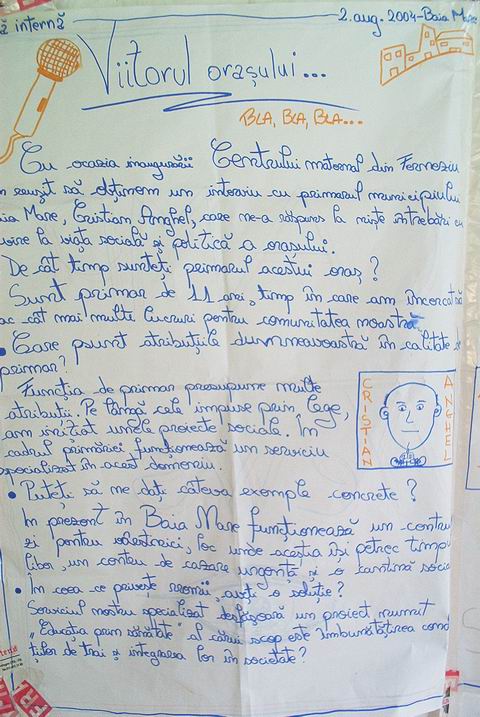 ă internă
2. aug. 2004-Baia Mare
Viitorul orașului...
BLA, BLA, BLA...
Cu ocazia inaugurării Centrului maternal din Ferneziu
n reușit să obținem un interviu cu primarul municipiului
aia Mare, Cristian Anghel, care ne-a răspuns la niște întrebări cu
vire la viața socială și politică a orașului.
De cât timp sunteți primarul acestui oraș?
Sunt primar de 11 ani, timp în care am încercat să
ac cât mai multe lucruri pentru comunitatea noastră
• Care sunt atribuțiile dumneavoastră în calitate de
primar?
Funcția de primar presupune multe
atribuții. Pe lângă cele impuse prin lege,
am inițiat unele proiecte sociale. În
cadrul primăriei funcționează un serviciu
specializat în acest domeniu.
CRISTIAN
ANGHEL
• Puteți să me dați câteva exemple concrete?
În prezent în Baia Mare funcționează un centru
zi pentru vârstnici, loc unde aceștia își petrec timp
liber, un centru de cazare urgentă și o cantină socia
• În ceea ce privește aveți o soluție?
Serviciul nostru specializat desfășoară un proiect numit
„Educația prin sănătate" al cărui scop este îmbunătățirea cond
țiilor de trai și integrarea lor în societate?